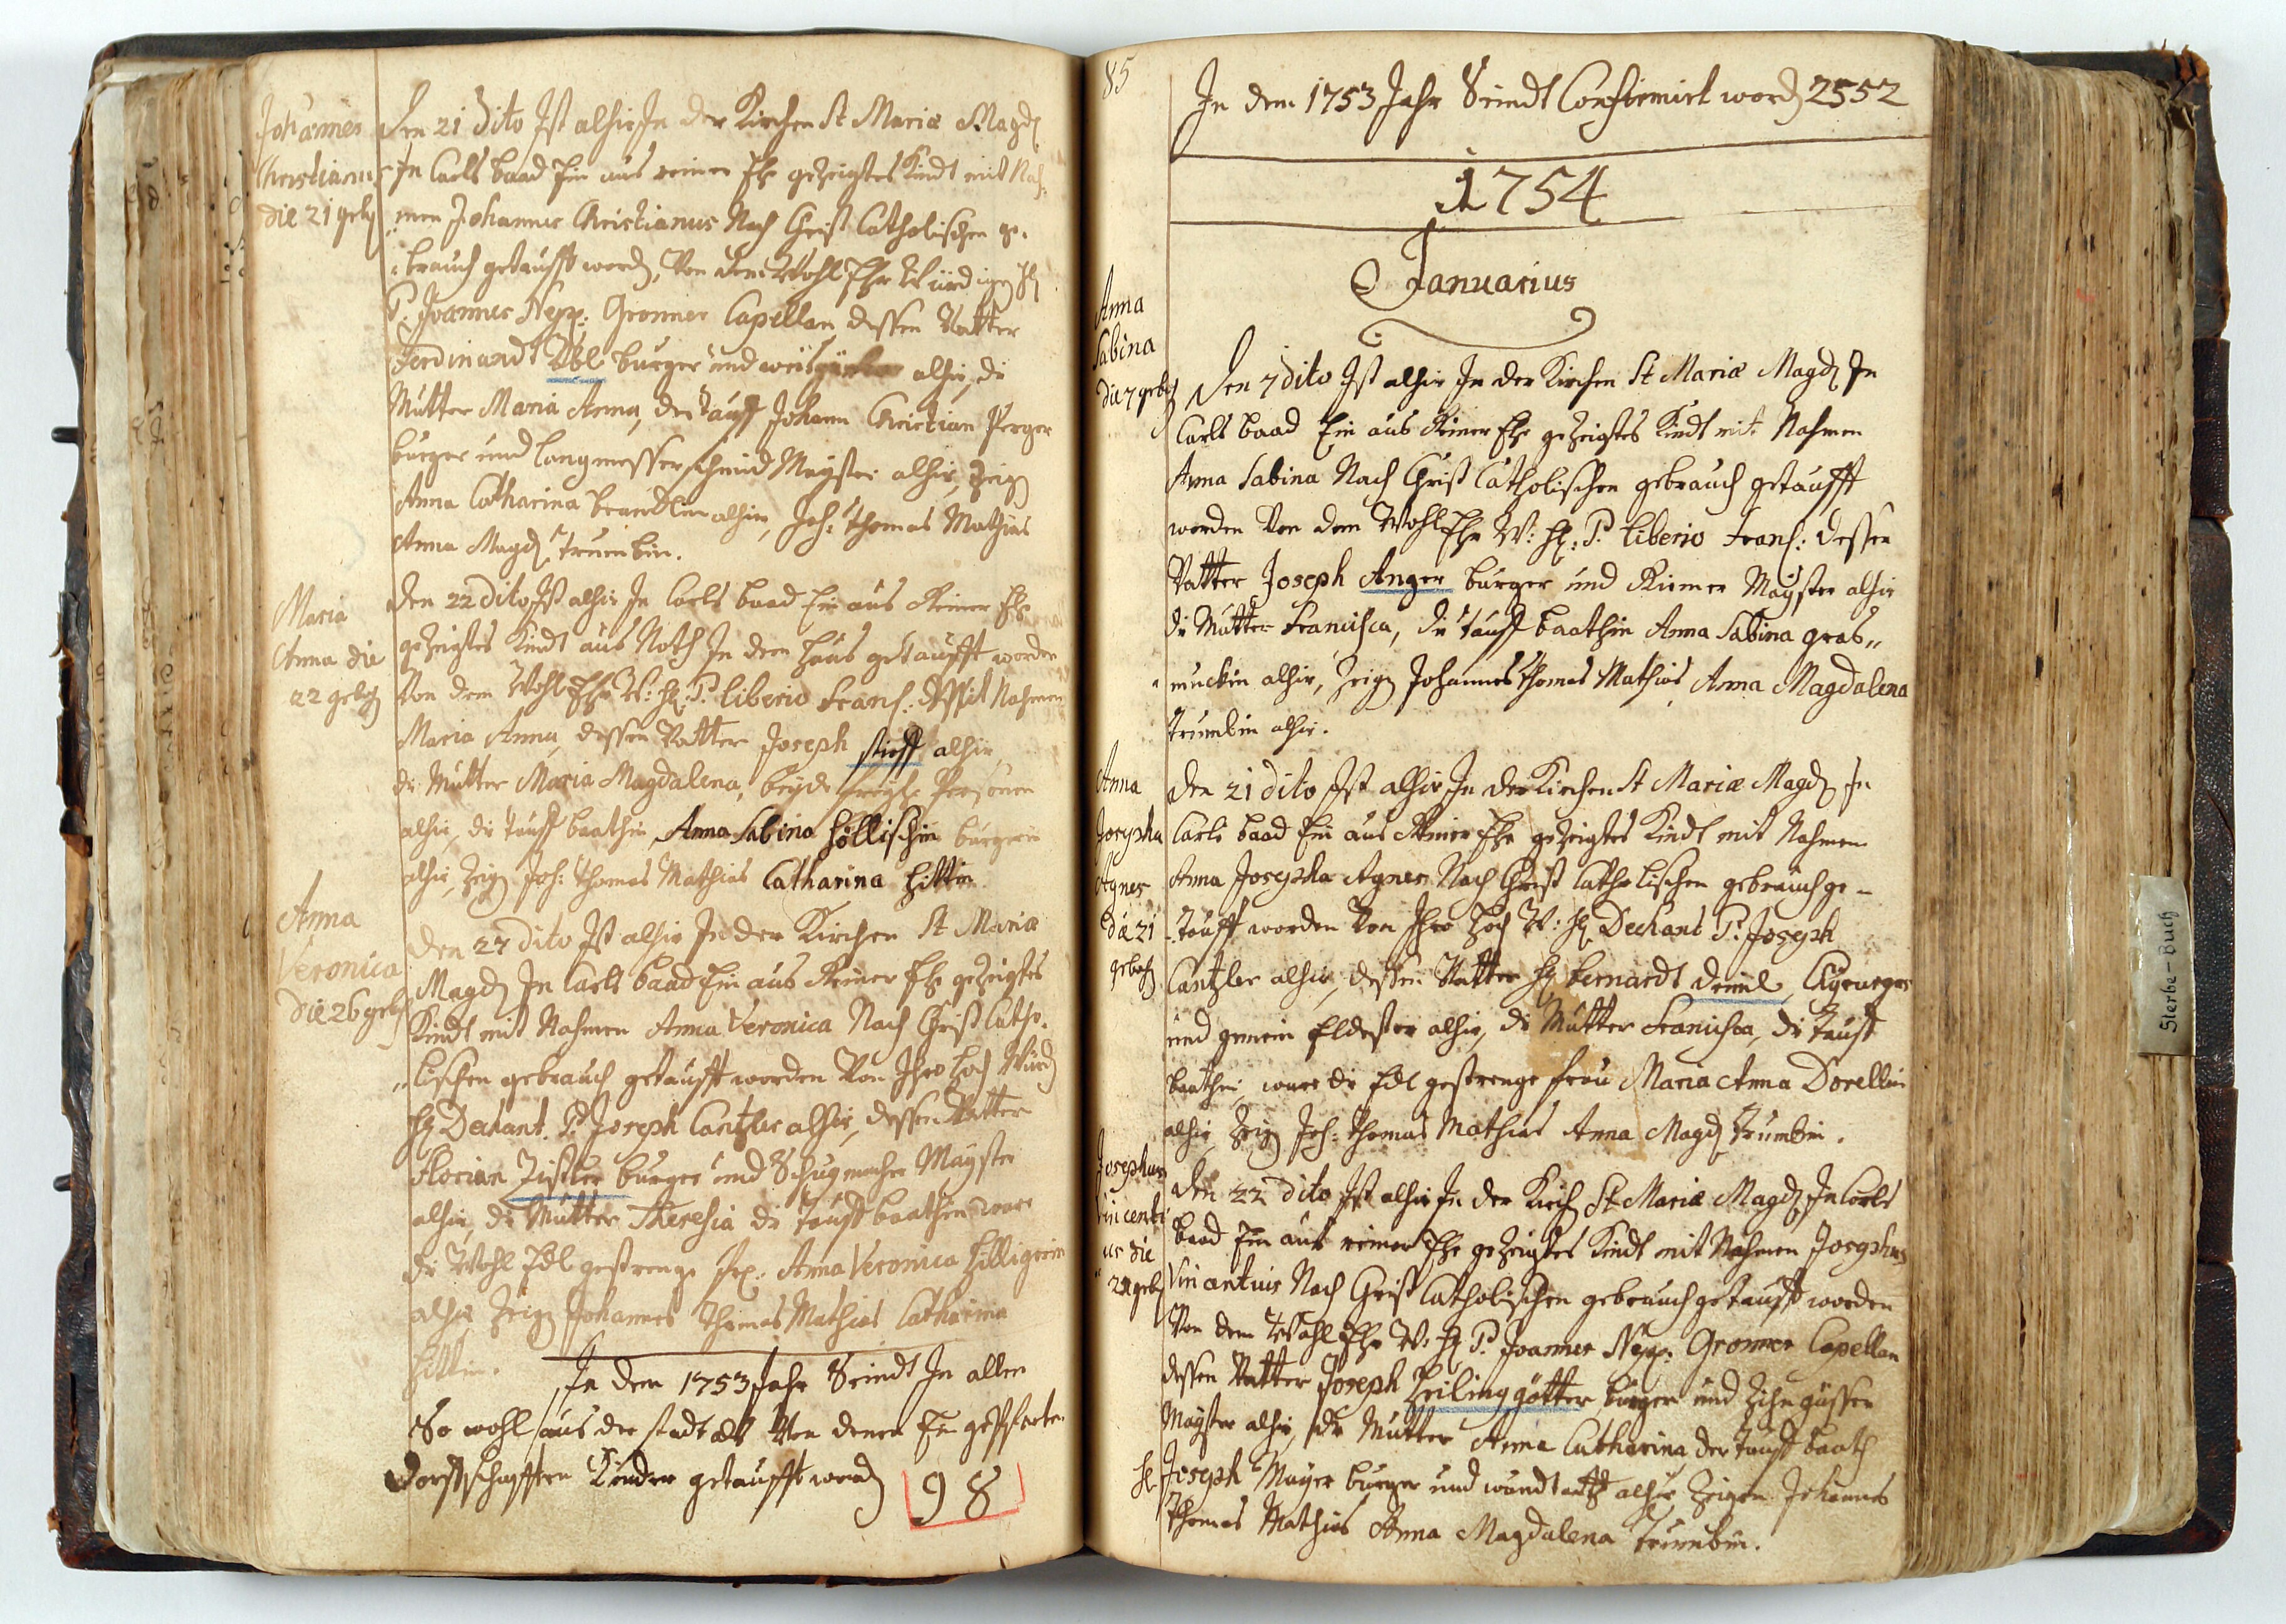 Johannes
Christianus
die 21 geb:
Den 21 dito Ist alhir In der Kirchen St Mariæ Magd:
In Carls baad Ein aus reiner Ehe gezeigtes Kindt mit Nah=
men Johannes Christianus Nach Christ Catholischen ge=
brauch getaufft word, Von dem Wohl Ehr Würdigen H:
P. Joannes Nep: Gronner Capellan dessen Vatter
Ferdinandt Löbl burger und alhir, die
Mutter Maria Anna, der tauff Johann Christian Perger
burger und Langmesserschmid Mayster alhir, Zeig
Anna Catharina alhir, Joh: Thomas Mathias
Anna Magd: Trumbin.
Maria
Anna die
22 geboh
Den 22 dito Ist alhir In Carls baad Ein aus Reiner Ehe
gezeigtes Kindt aus Noth In dem haus getaufft worden
Von dem Wohl Ehr W: H: P. Liberio Franc: Nahmen
Maria Anna, dessen Vatter Joseph stieff alhir,
die Mutter Maria Magdalena, beyde Personen
alhir, die tauff baathin, Anna Sabina höllischin burgerin
alhir, Zeig Joh: Thomas Mathias Catharina hittin.
Anna
Veronica
die 26 geb
Den 27 dito Ist alhir In der Kirchen St Mariæ
Magd: In Carls baad Ein aus Reiner Ehe gezeigtes
Kindt mit Nahmen Anna Veronica Nach Christ Catho=
lischen gebrauch getaufft worden Von Ihro Hoch Würd
H: Dechant. P. Joseph Cantzler alhir, dessen Vatter
Florian Zistler burger und Schuhmacher Mayster
alhir, die Mutter Theresia die tauff baathin ware
die Wohl Edl gestrenge Anna Veronica
alhir Zeig Johannes Thomas Mathias Catharina
hittin.
In dem 1753 Jahr Seindt In allen
So wohl aus der stadt als Von denen Ein gepfarten
dorffschafften Kinder getaufft word 98
85
In dem 1753 Jahr Seindt Confirmirt word 2552
1754
Januarius
Anna
Sabina
die 7 geboh
Den 7 dito Ist alhir In der Kirchen St Mariæ Magd: In
Carls baad Ein aus Reiner Ehe gezeigtes Kindt mit Nahmen
Anna Sabina Nach Christ Catholischen gebrauch getaufft
worden Von dem Wohl Ehr W: H: P. Liberio Franc: dessen
Vatter Joseph Anger burger und Riemer Mayster alhir
die Mutter Francisca, die tauff baathin Anna Sabina gras=
muckin alhir, Zeig Johannes Thomas Mathias, Anna Magdalena
Trumbin alhir.
Anna
Josepha
Agnes
die 21
geboh
Den 21 dito Ist alhir In der Kirchen St Mariæ Magd: In
Carls baad Ein aus Reiner Ehe gezeigtes Kindt mit Nahmen
Anna Josepha Agnes Nach Christ Catholischen gebrauch ge=
taufft worden Von Ihro Hoch W: H: Dechant P. Joseph
Cantzler alhir, dessen Vatter H: Bernardt Deiml, Chyrurgus
und gemein Eldester alhir, die Mutter Francisca, die tauff
baathin, ware die Edl gestrenge frau Maria Anna Dorellin
alhir, Zeig Joh: Thomas Mathias Anna Magd: Trumbin.
Josephus
Vincenti
us die
geb
Den 22 dito Ist alhir In der Kirch St Mariæ Magd: In Carls
baad Ein aus reiner Ehe gezeigtes Kindt mit Nahmen Josephus
Vincentius Nach Christ Catholischen gebrauch getaufft worden
Von dem Wohl Ehr W: H: P. Joannes Nep: Gronner Capellan
dessen Vatter Joseph Heilinggötter burger und Zihn güsser
Mayster alhir, die Mutter Anna Catharina, der tauff baath
H: Joseph Mayer burger und wundtartzt alhir, Zeigen Johannes
Thomas Mathias Anna Magdalena Trumbin.
Sterbe-Buch